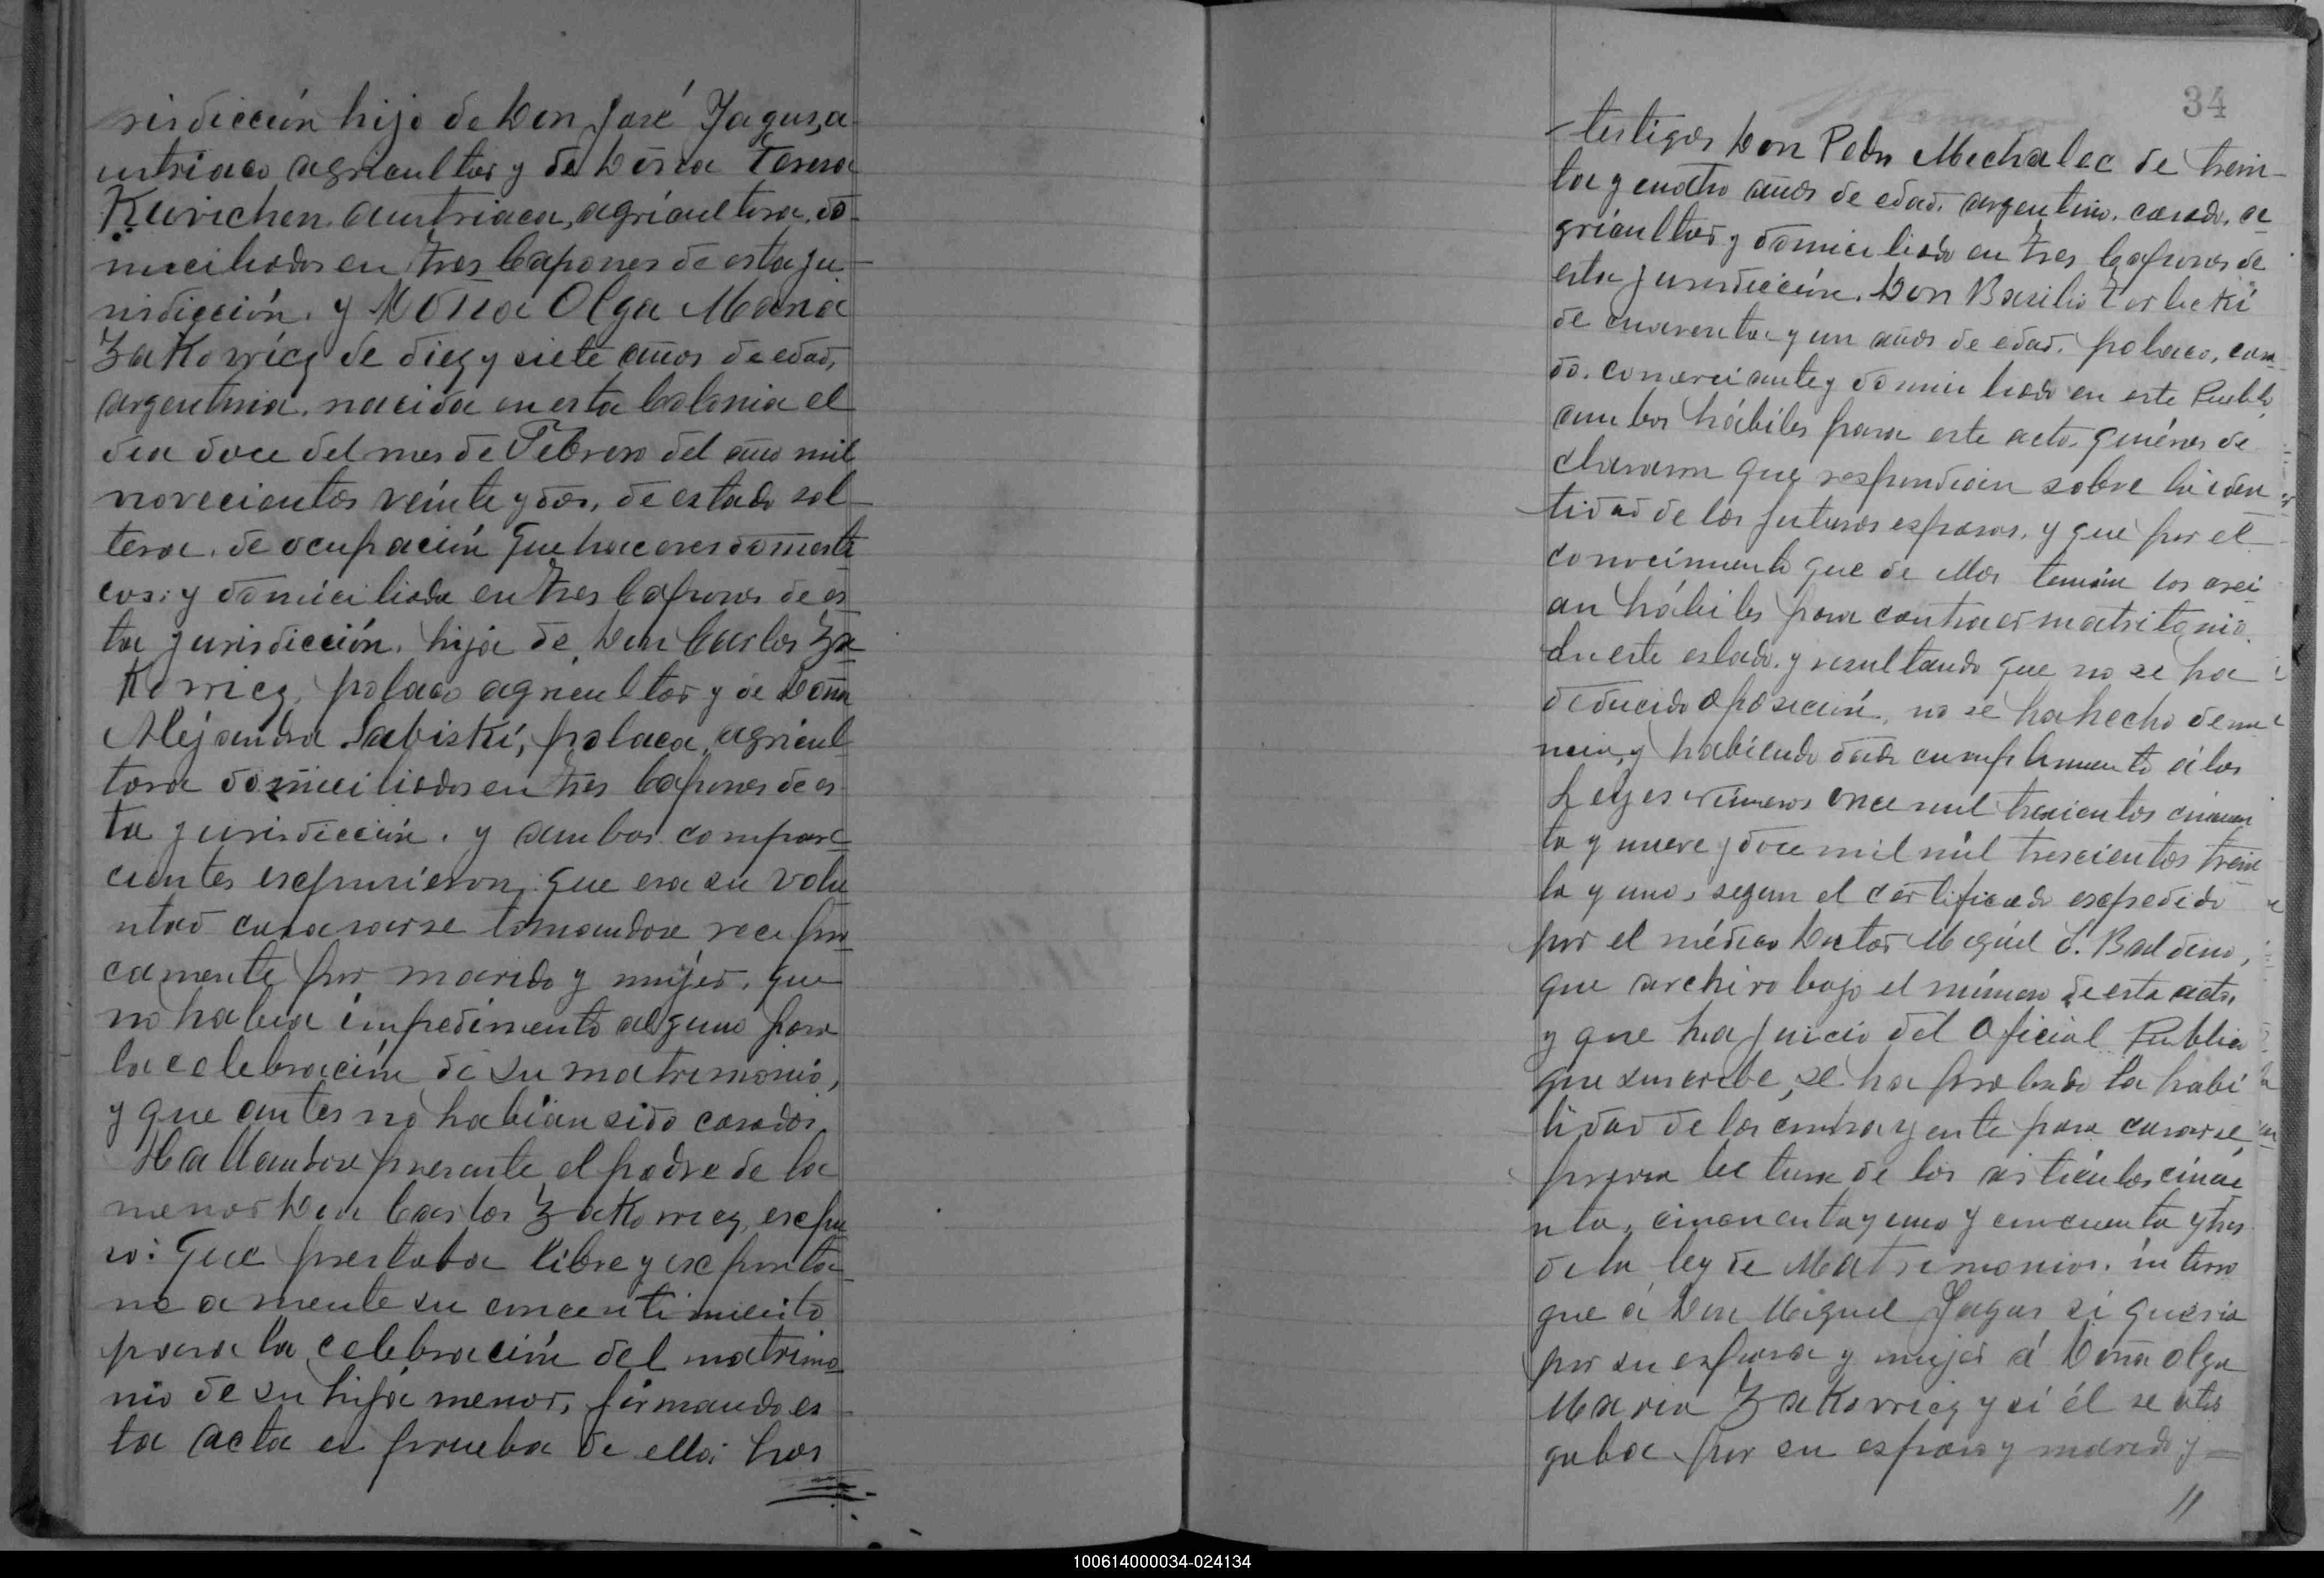 risdicción hijo de Don José Jagus, a
ustriaco agricultor y de Doña Teresa
Kurichen. austriaca, agricultora. do
miciliados en Tres Capones de esta ju
risdicción. y Doña Olga Maria
Zakowicz de diez y siete años de edad,
argentina. nacida en esta Colonia el
dia doce del mes de Febrero del año mil
novecientos veinte y dos, de estado sol
tera. de ocupación quehaceres domesti
cos: y domiciliada en Tres Capones de es
ta jurisdicción. hija de Don Carlos Za
kowicz, polaco agricultor y de Doña
Alejandra Sabiski, polaca, agricul
tora domiciliados en Tres Capones de es
ta jurisdicción. y ambos compare
cientes expusieron: que era su volu
ntad casarse tomandose recipro
camente por marido y mujer, que
no habia impedimento alguno para
la celebración de su matrimonio,
y que antes no habian sido casados.
Hallandose presente el padre de la
menor Don Carlos Zakowicz, expu
so: Que prestaba libre y exponta
neamente su concentimiento
para la celebración del matrimo
nio de su hija menor, firmando es
ta acta en prueba de ello: los
34
testigos Don Pedro Mechalec de trein
ta y cuatro años de edad. argentino. casado. a
gricultor y domiciliado en Tres Capones de
esta jurisdicción. Don Basilio Zorbecki
de cuarenta y un años de edad. polaco, casa
do. comerciante y domiciliado en este Pueblo,
ambos hábiles para este acto. quienes de
clararon que respondian sobre la iden
tidad de los futuros esposos. y que por el
conocimiento que de ellos tenian los creí
an hábiles para contraer matritonio.
En este estado. y resultando que no se ha
deducido oposición, no se ha hecho denu
ncia, y habiendo dado cumplimento á las
Leyes números once mil trescientos cincuen
ta y nueve y doce mil mil trescientos trein
ta y uno, segun el certificado expedido
por el médico Doctor Miguel S. Baldino,
que archivo bajo el número de esta acta,
y que ha juicio del Oficial Publico
que suscribe, se ha probado la habi
lidad de los contrayente para casarse,
previa lectura de los articulos cincue
nta, cincuenta y uno y cincuenta y tres
de la ley de Matrimonios. interro
gue á Don Miguel Jagus si queria
por su esposa y mujer á Doña Olga
Maria Zakowicz y si él se otor
gaba por su esposo y marido y =
11
100614000034-024134